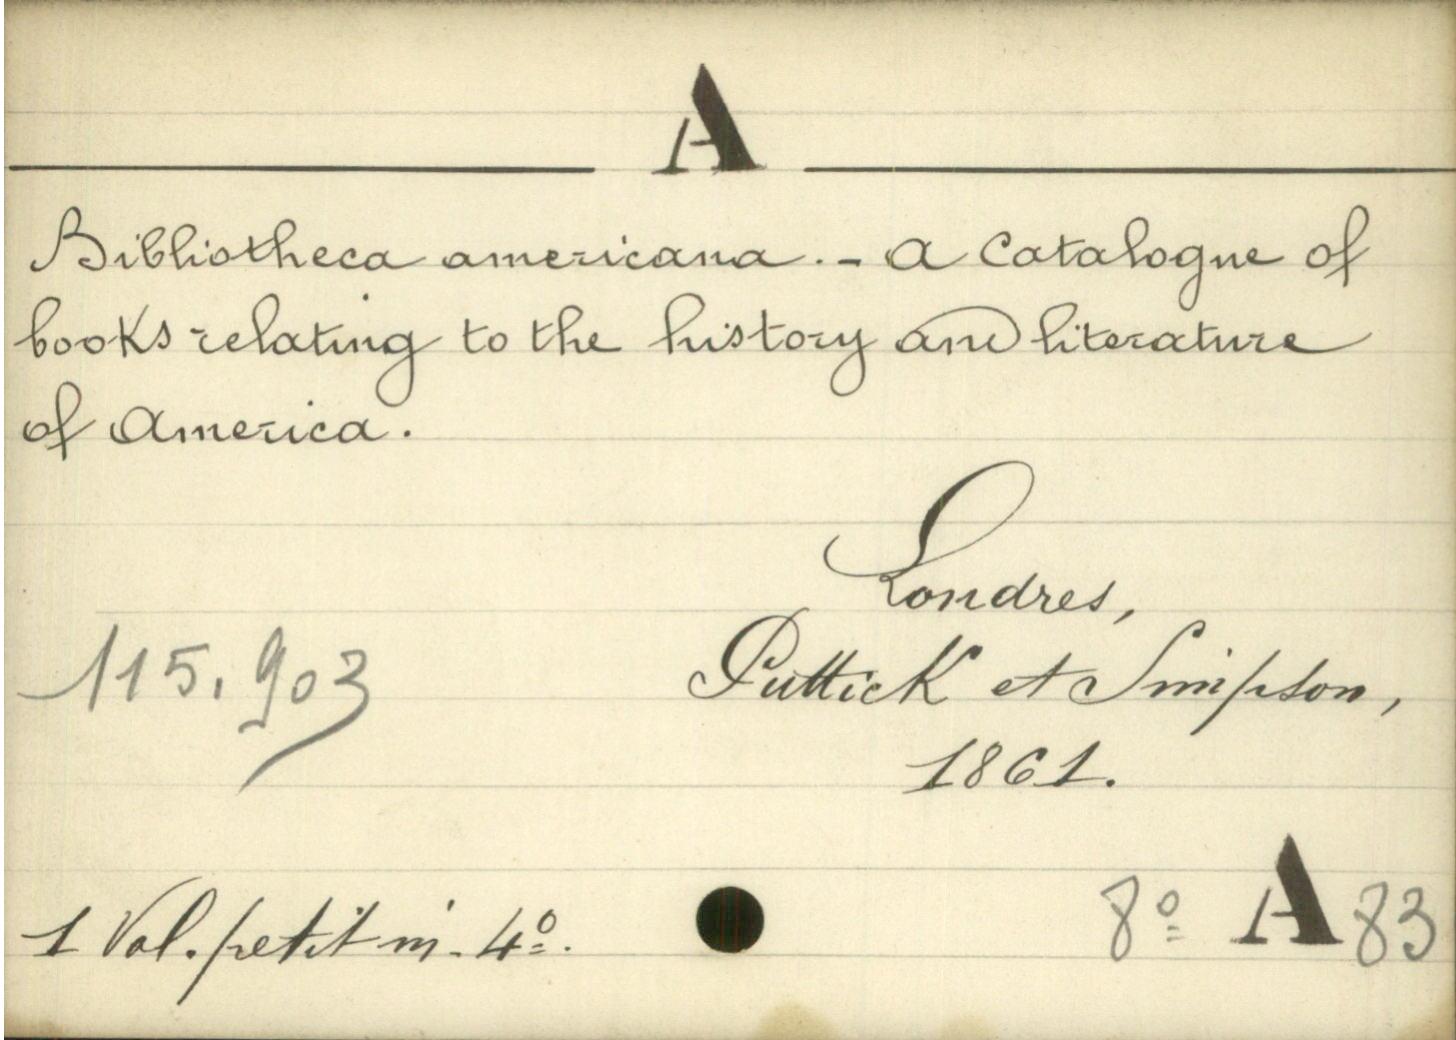 A
Bibliotheca americana. - A Catalogue of
books relating to the history and literature
of America.
Londres,
115.903
Puttick et Simpson,
1861.
1 Vol. petit in-4º.
8º A 83